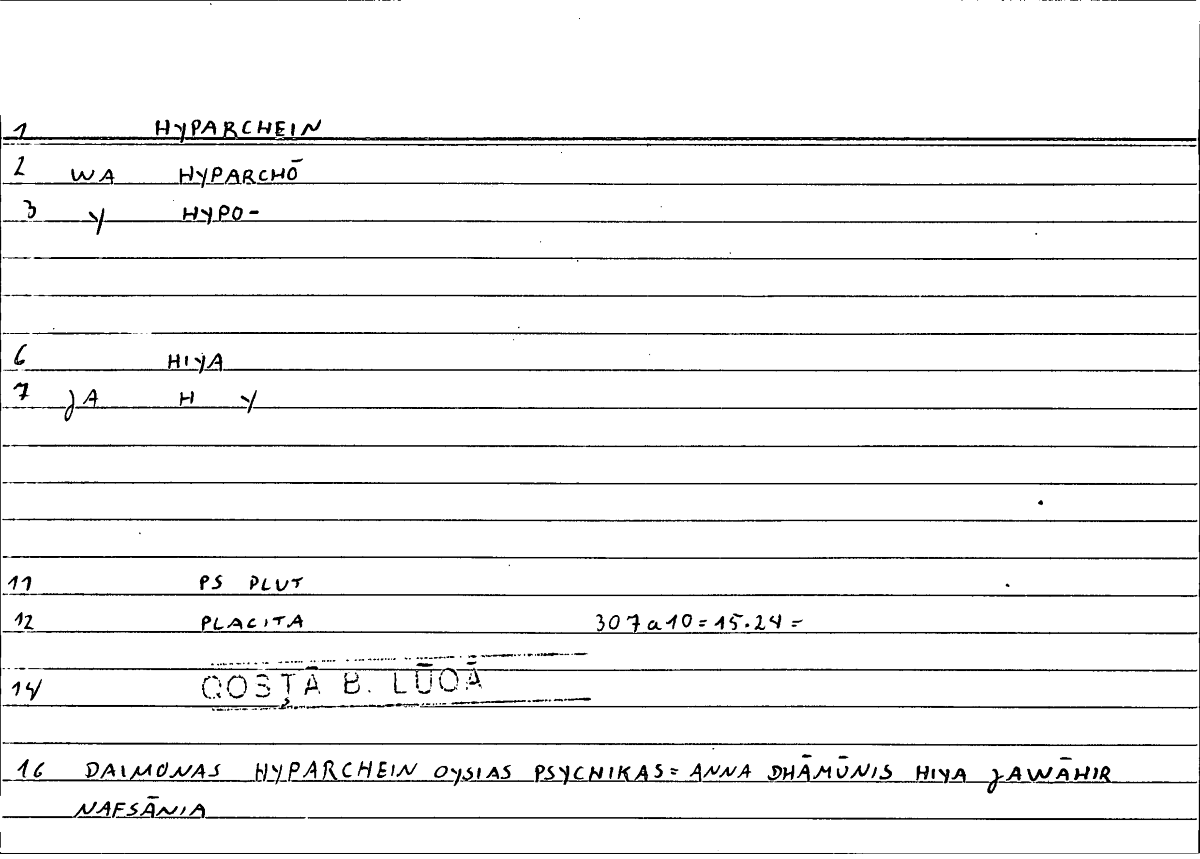 1 HYPARCHEIN
2 WA HYPARCHŌ
3 Y HYPO-
6 HIYA
7 JA H Y
11 PS PLUT
12 PLACITA 307a10=15.24=
14 QOSṬĀ B. LŪQĀ
16 DAIMONAS HYPARCHEIN OYSIAS PSYCHIKAS= ANNA DHĀMŪNIS HIYA JAWĀHIR
NAFSĀNIA